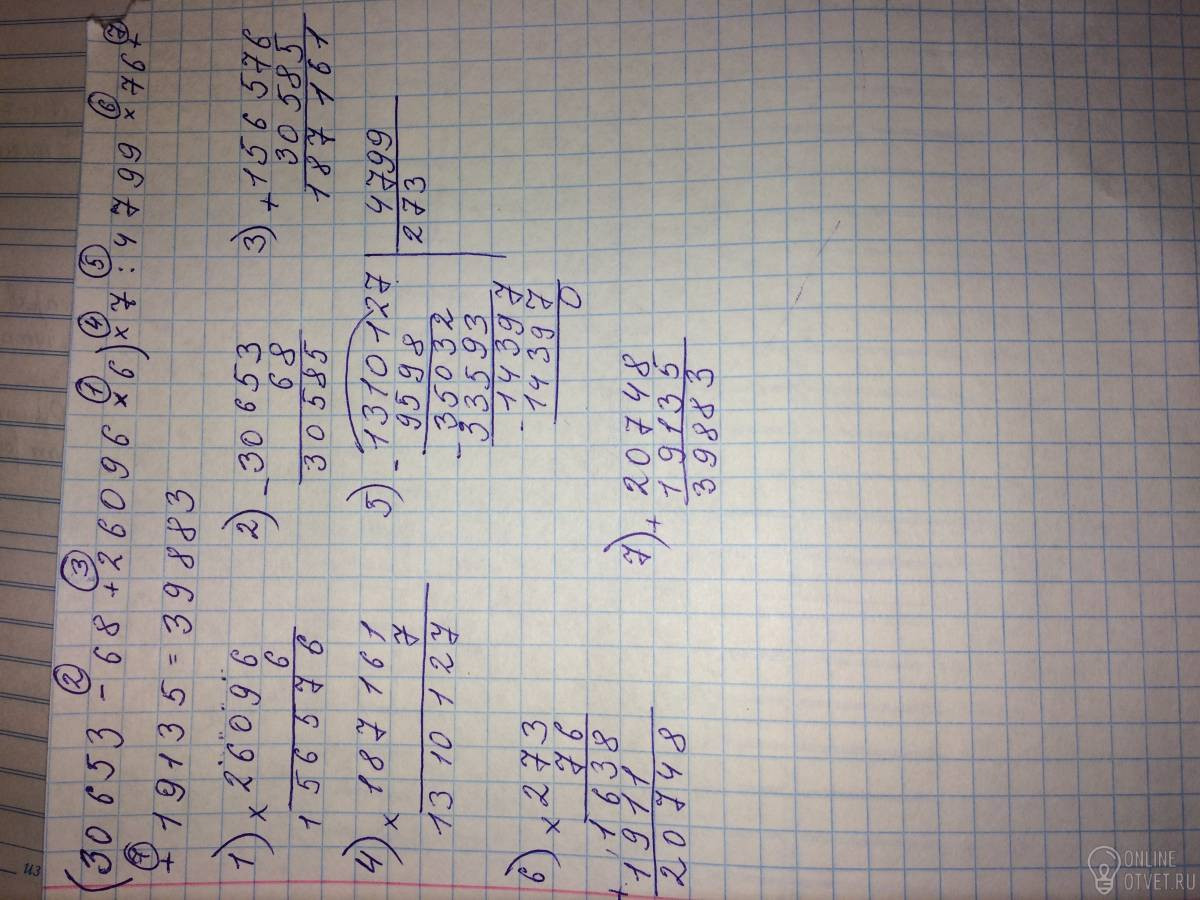 (30 653 - 68 + 26096 × 6) × 7 : 4799 × 76 +
② ③ ① ④ ⑤ ⑥ ⑦
⑦
+ 19135 = 39883
1) × 26096
6
156576
2) - 30653
68
30585
3) + 156576
30585
187161
4) × 187161
7
1310127
5) - 1310127 | 4799
9598 273
- 35032
33593
- 14397
14397
0
6) × 273
76
1638
+ 1911
20748
7) + 20748
19135
39883
из
ONLINE
OTVET.RU